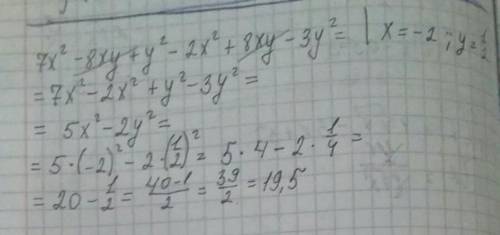 7x² - 8xy + y² - 2x² + 8xy - 3y² = | x = -2; y = 1/2
= 7x² - 2x² + y² - 3y² =
= 5x² - 2y² =
= 5·(-2)² - 2·(1/2)² = 5·4 - 2·1/4 =
= 20 - 1/2 = (40-1)/2 = 39/2 = 19,5